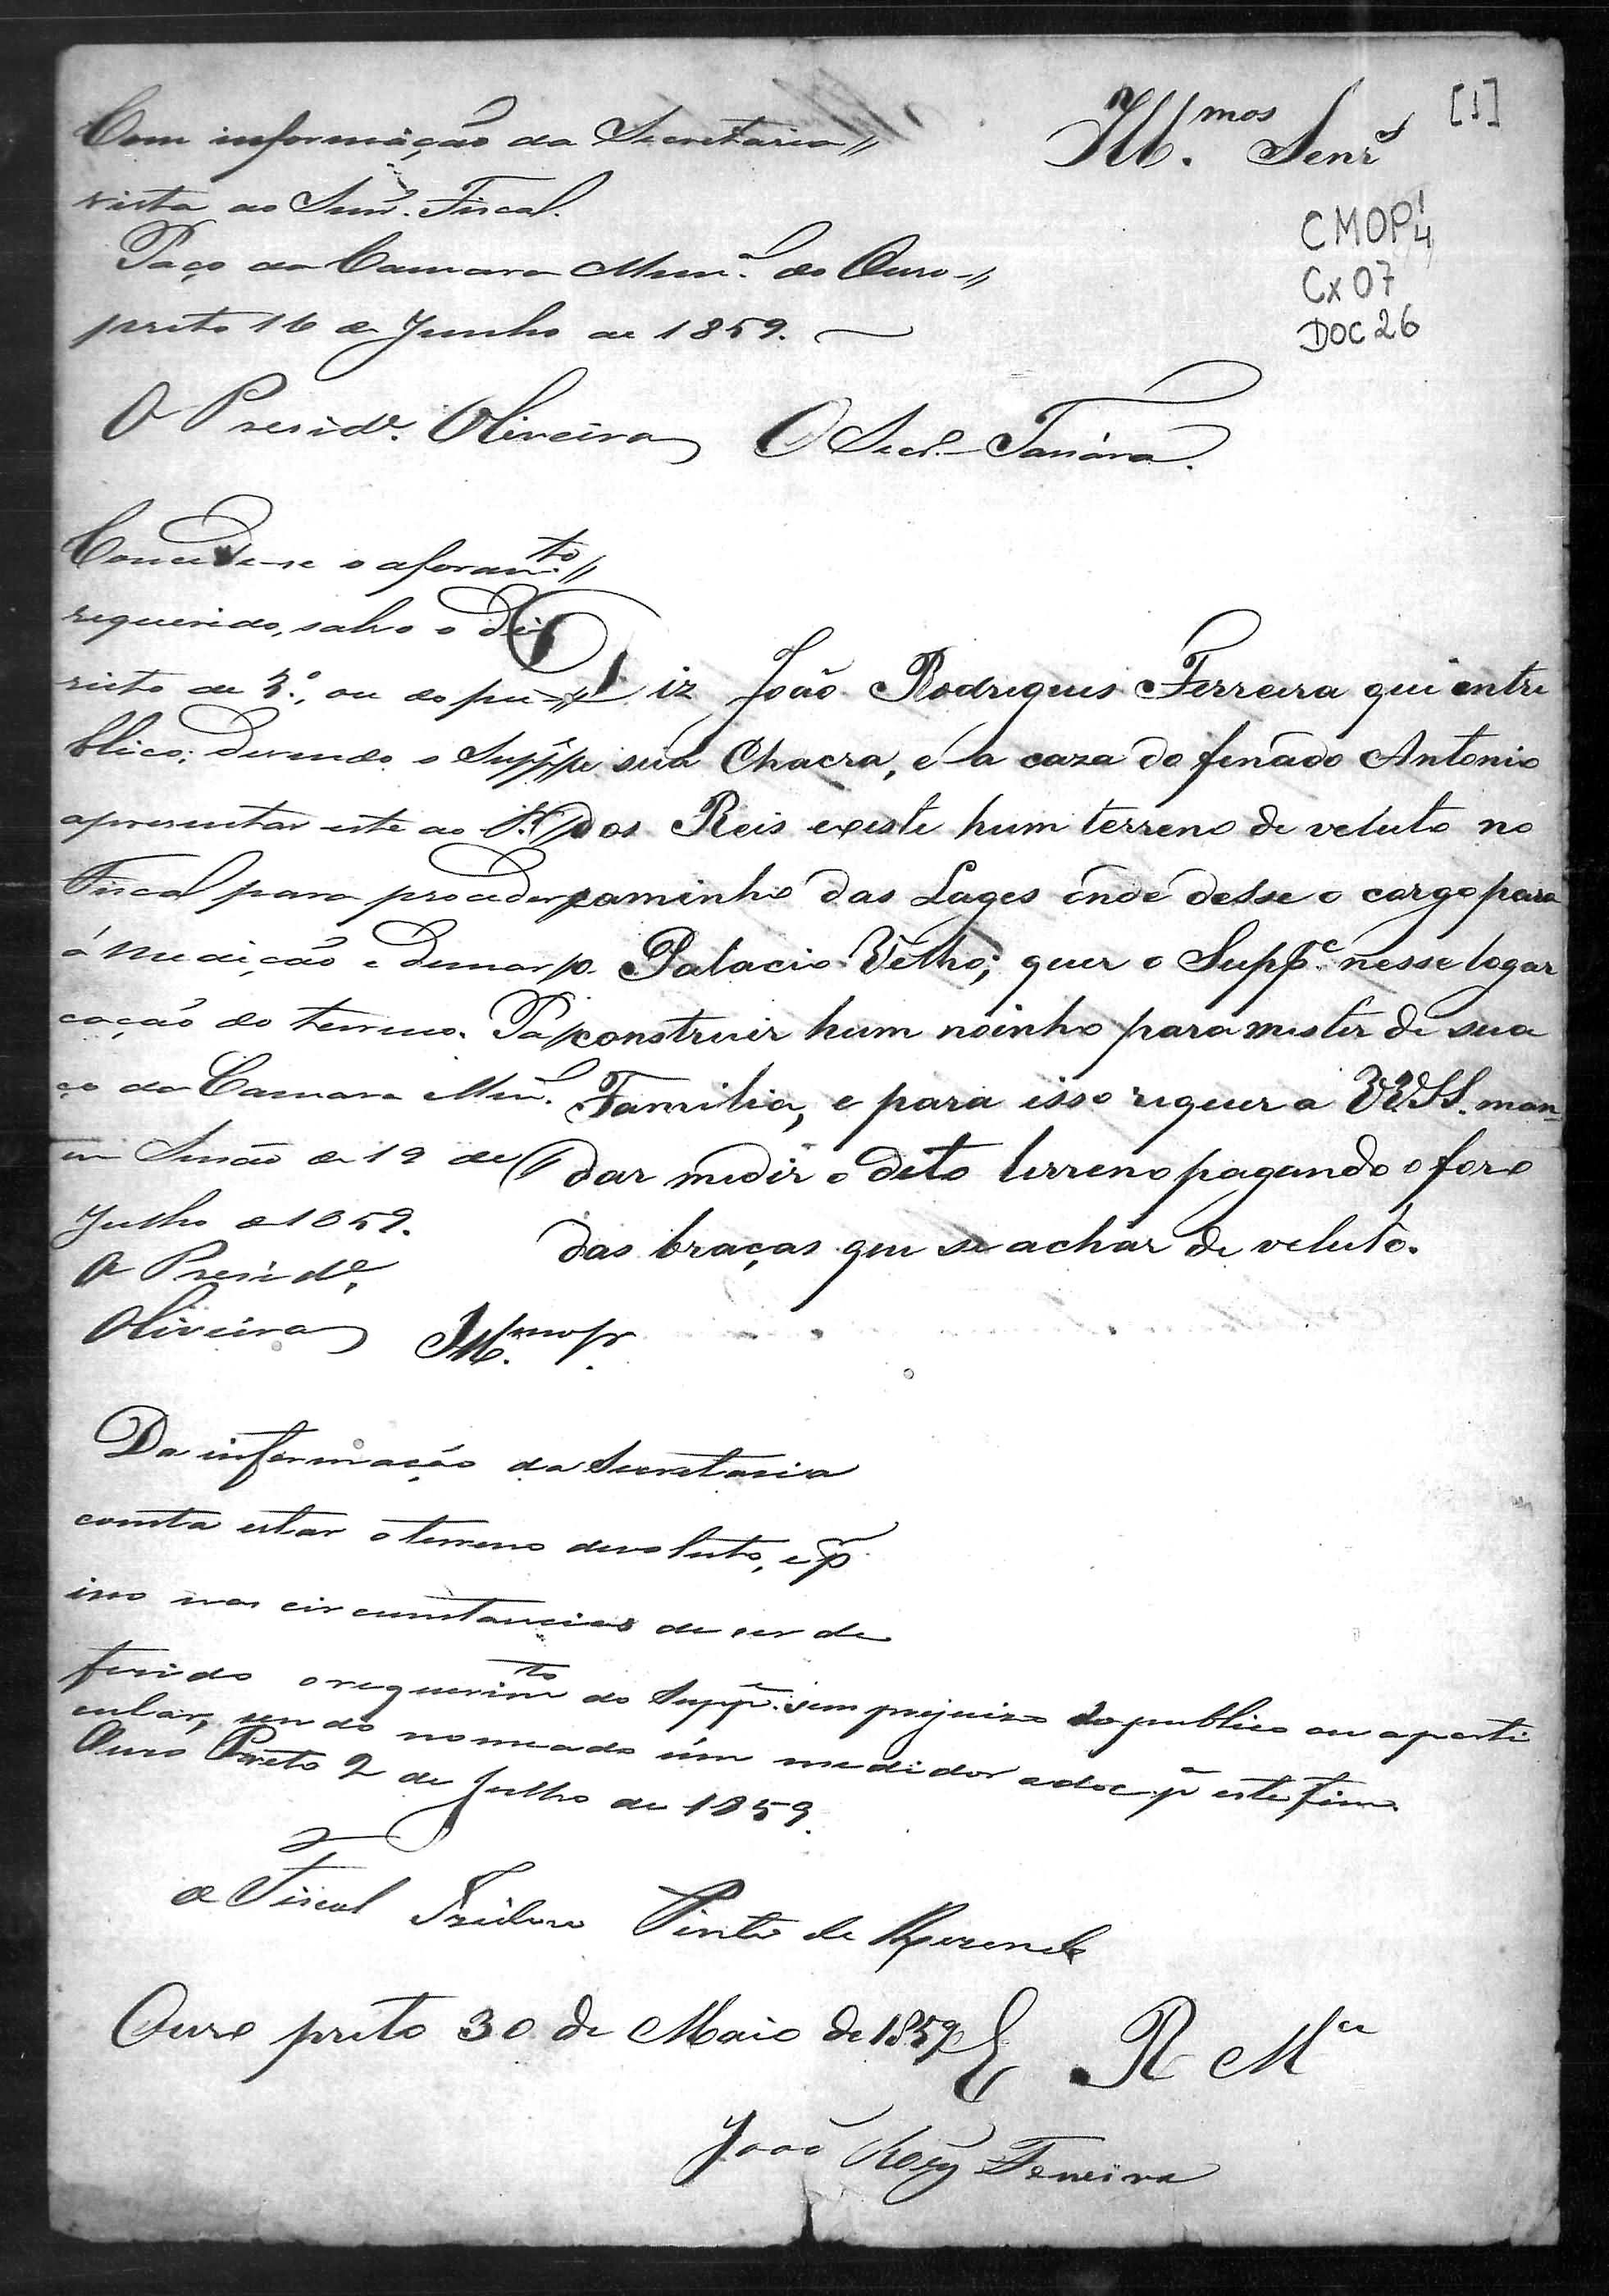 Ill.mos Senrs
[1]
CMOP 1/4
Cx 07
DOC 26
Com informação da Secretaria//
vista ao Senr. Fiscal.
Paço da Camara Mun.al do Ouro-//
preto 16 de Junho de 1859.
O Presid.e Oliveira O Secr.o
Concede-se o aforam.to//
requerido, salvo o di
reito de 3.º, ou do pu-//
blico; devendo o Supp.e
apresentar este ao Sr.
Fiscal para proceder
á medição e demar
cação do terreno. Pa
ço da Camara Mun.al
em Sessão de 12 de
Julho de 1859.
O Presid.e
Oliveira
Diz João Rodrigues Ferreira que entre
sua Chacra, e a caza do finado Antonio
dos Reis existe hum terreno de veluto no
caminho das Lages onde desse o cargo para
Palacio Velho; quer o Supp.e nesse logar
construir hum moinho para mister de sua
Familia, e para isso requer a VVSS. man
dar medir o dito terreno pagando o foro
das braças que se achar de veluto.
Ill.mos Sr.
Da informação da Secretaria
consta estar o terreno devoluto, e p.r
isso nas circumstancias de ser de
ferido o requerim.to do Supp.e sem prejuizo do publico ou aparti
cular, sendo nomeado úm medidor adoc p.a este fim.
Ouro Preto 2 de Julho de 1859.
O Fiscal Izidoro Pinto de Rezende
Ouro preto 30 de Maio de 1859
E R M.ce
João Roiz Ferreira